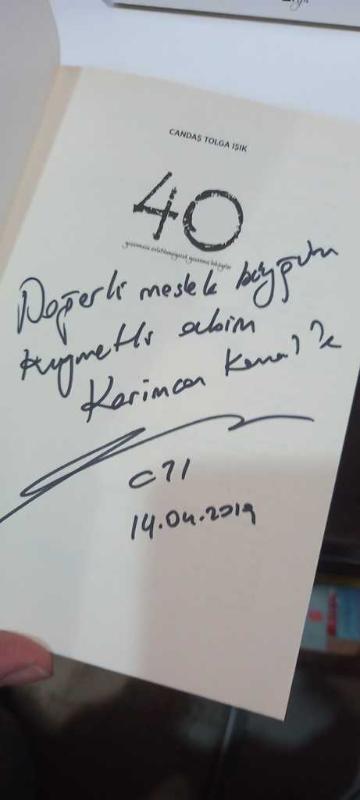 CANDAS TOLGA IŞIK
40
Değerli meslek büyüğüm
kıymetli abim
Kerimcan Kamal'e
CTI
14.04.2019